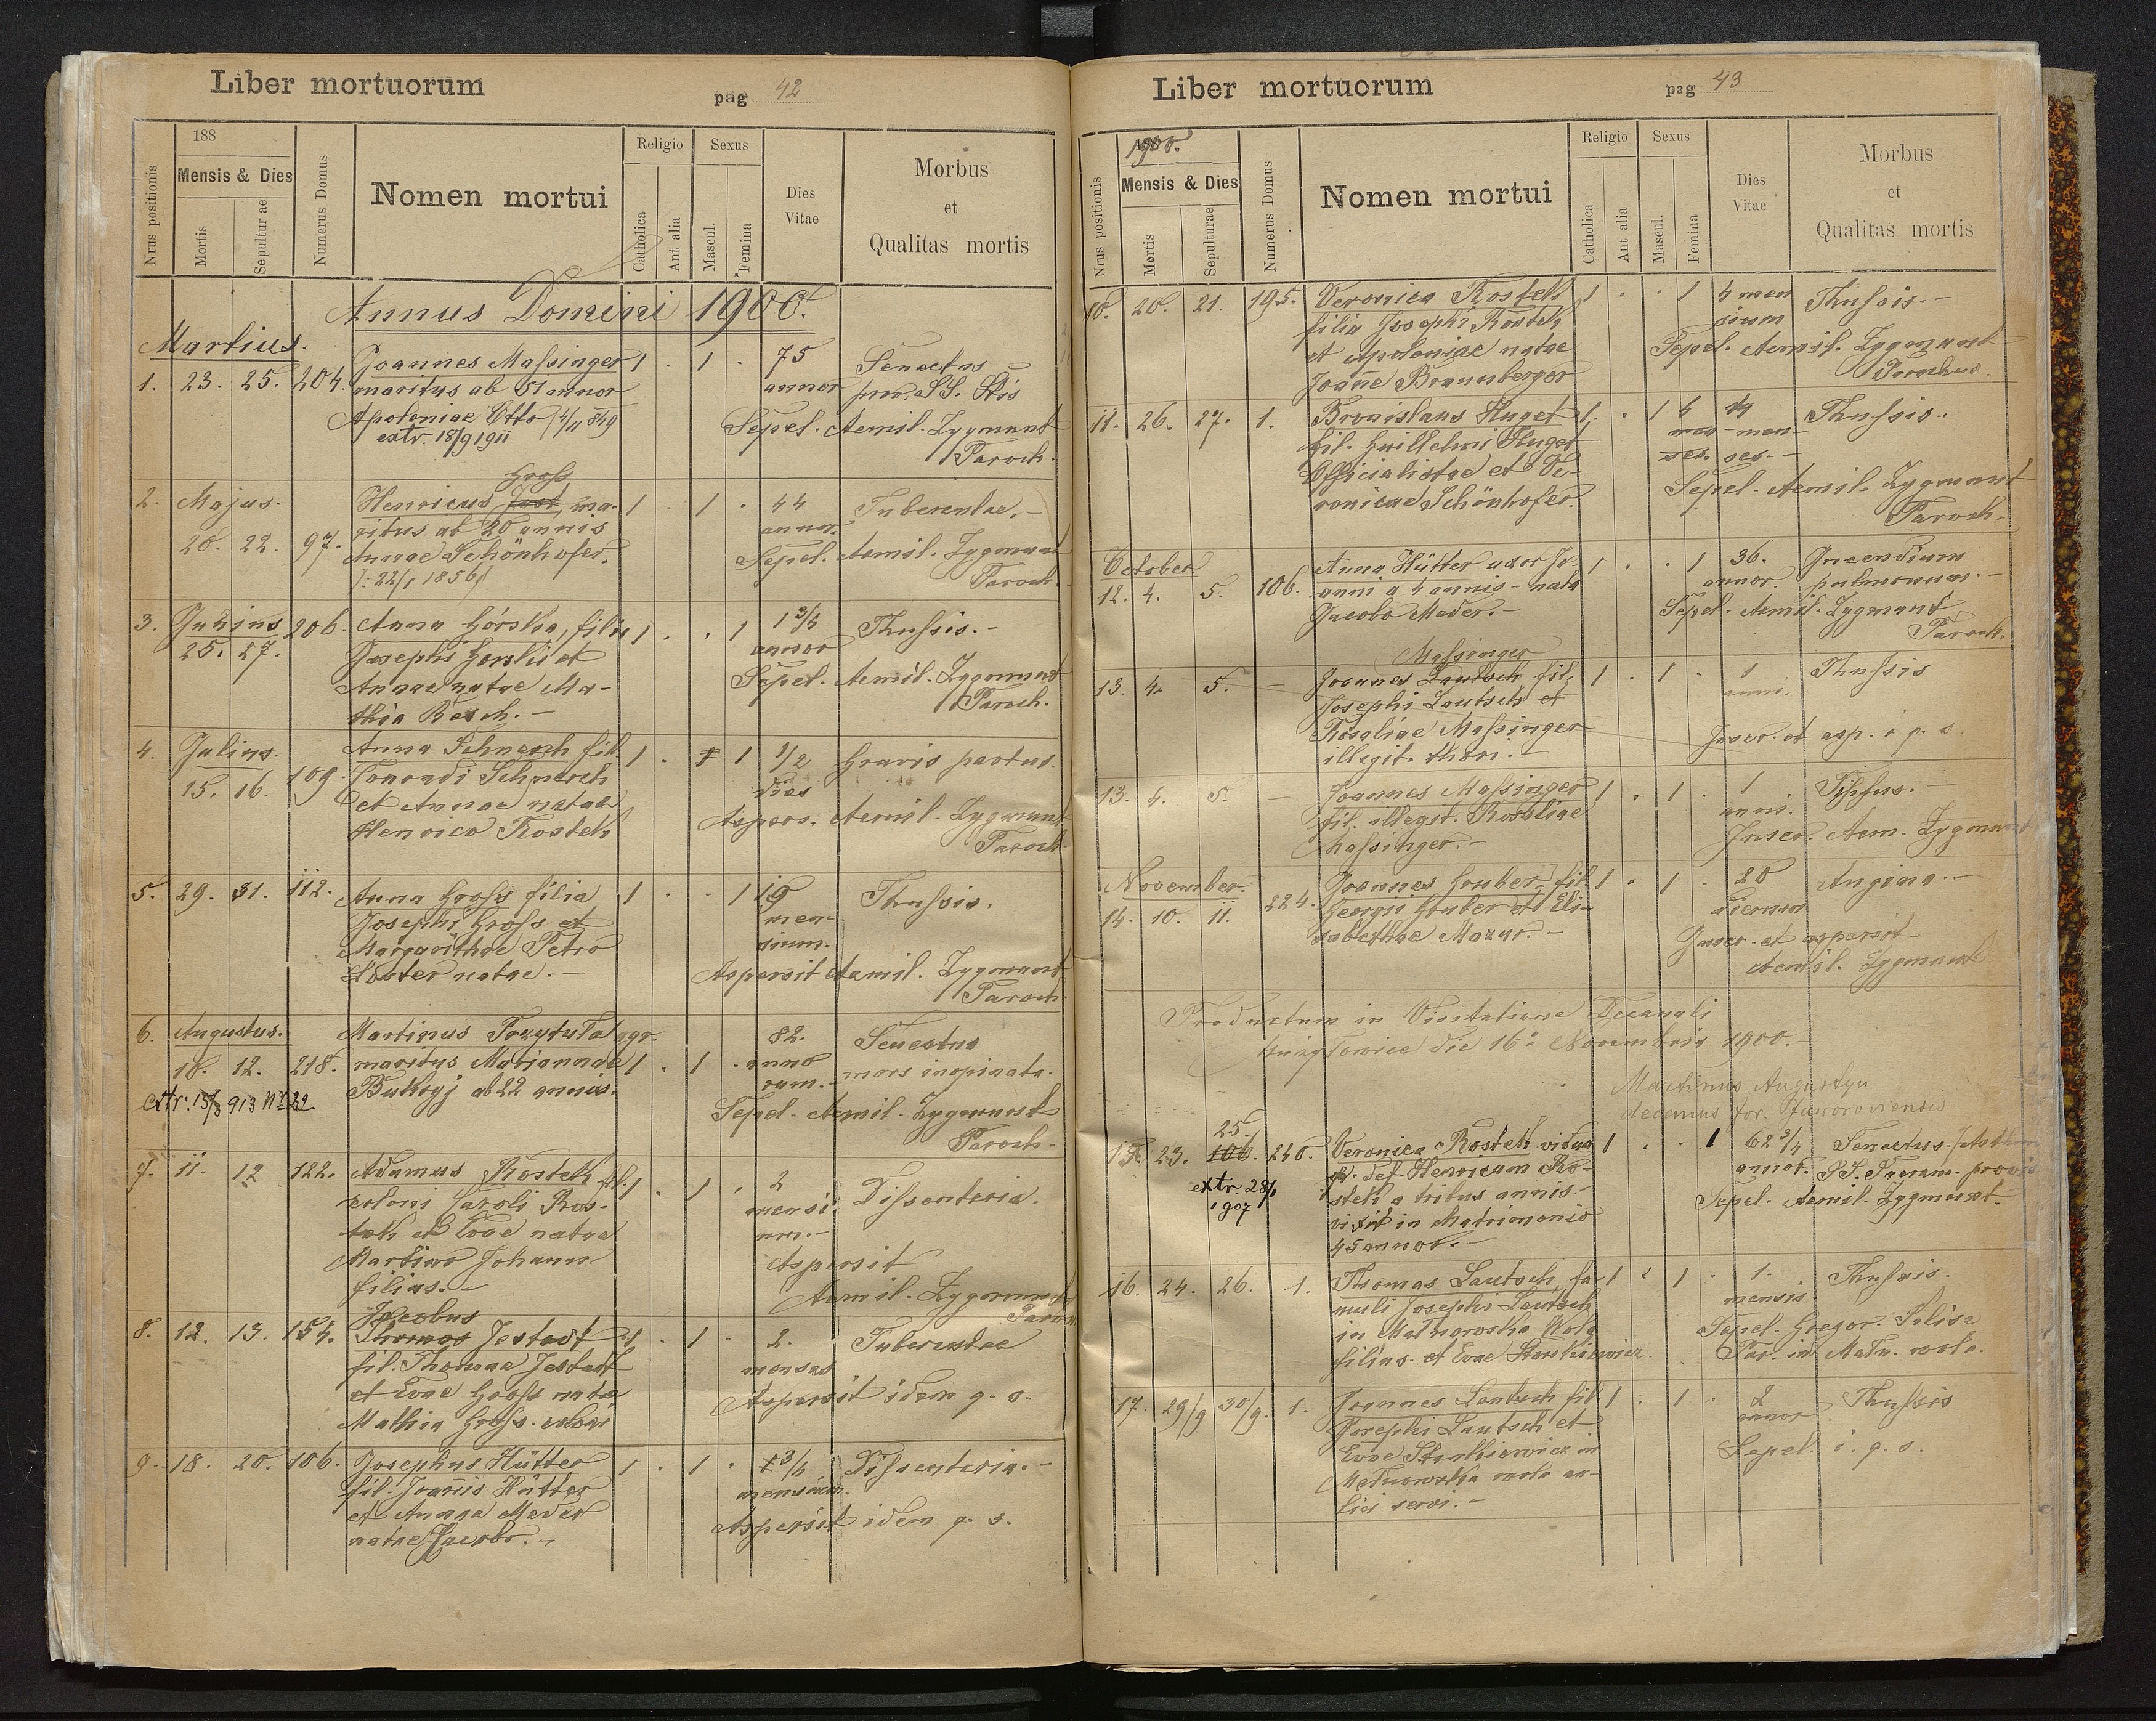 Liber mortuorum
pag 42
Nrus positionis
188
Mensis & Dies
Mortis
Sepulturae
Numerus Domus
Nomen mortui
Religio
Catholica
Aut alia
Sexus
Mascul.
Femina
Dies
Vitae
Morbus
et
Qualitas mortis
Annus Domini 1900.
Martius.
1. 23. 25. 204. Joannes Maſsinger 1 . 1 . 75 Senectus
maritus ab 51 annor annor prov. SS. Stis
Apoloniae Otto 4/11 849 Sepel. Aemil. Zygmunt
extr. 18/9 1911 Paroch.
Groſs
2. Majus. Henricus Jost, ma- 1 . 1 . 44 Tuberculae.-
20. 22. 97. ritus ab 20 annis annor.
Annae Schönhofer. Sepel. Aemil. Zygmunt
/: 22/1 1856 / Paroch.
3. Junius 206. Anna Górska, filia 1 . . 1 1 3/4 Thuſsis.-
25. 27. Josephi Gorski et annor
Annae natae Ma- Sepel. Aemil. Zygmunt
thia Resch.- Paroch.
4. Julius. Anna Schnerch fil. 1 . 1 1/2 Gravis partus.
15. 16. 109. Conradi Schnerch dies
et Annae natae Aspers. Aemil. Zygmunt
Henrico Rosteh Paroch.
5. 29. 31. 112. Anna Groſs filia 1 . . 1 19 Thuſsis.
Josephi Groſs et men-
Margarithae Petro sium.
Lauter natae.- Aspersit Aemil. Zygmunt
Paroch.
6. Augustus. Martinus Przytuła agr. 82. Senectus
10. 12. 218. maritus Mariannae 1 . 1 . anno mors inopinata.
extr. 15/3 913 Nr 22 ab 22 annis. rum.-
Sepel. Aemil. Zygmunt
Paroch.
7. 11. 12 122. Adamus Rosteh fil. 1 . 1 . 2 Diſsenteria.
coloni Caroli Ros- mensi
teh et Evae natae um.-
Martino Johann Aspersit
filius.- Aemil. Zygmunt
Paroch
Jacobus
8. 12. 13. 154. Thomas Jestadt 1 . 1 . 2. Tuberculae
fil. Thomae Jestadt menses
et Evae Groſs nata Aspersit idem q. s.
Mathia Groſs.
9. 18. 20. 106. Josephus Hütter 1 . 1 . 3/4 Diſsenteria.-
fil. Joannis Hütter mensium.
et Annae Meder Aspersit idem q. s.
natae Jacobo.-
Liber mortuorum
pag 43
Nrus positionis
1900.
Mensis & Dies
Mortis
Sepulturae
Numerus Domus
Nomen mortui
Religio
Catholica
Aut alia
Sexus
Mascul.
Femina
Dies
Vitae
Morbus
et
Qualitas mortis
10. 20. 21. 195. Veronica Rosteh 1 . . 1 4 men Thuſsis.-
filia Josephi Rosteh sium
et Apoloniae natae Sepel. Aemil. Zygmunt
Joanne Braunberger Parochus.
11. 26. 27. 1. Bronislaus Huget 1. . 1 4 Thuſsis.
fil. Guillelmi Huget men-
Officialistae et Ve- ses.-
ronicae Schönhofer. Sepel. Aemil. Zygmunt
Paroch.
October Anna Hütter uxor Jo- 1 . . 1 36. Incendium
12. 4. 5. 106. anni a 4 annis - nata annor. pulmonum.-
Jacobo Meder.- Sepel. Aemil. Zygmunt
Paroch.
Maſsinger
13. 4. 5. - Joannes Lautsch fil, 1 . 1 . 1 Thuſsis
Josephi Lautsch et anni.
Rosaliae Maſsinger Inscr. et asp. i q. s.
illegit. thori.-
13. 4. 5. - Joannes Maſsinger 1 . 1 . 1 Tiffus.-
fil. illegit. Rosaliae anni.
Maſsinger.- Inscr. Aem. Zygmunt
November. Joannes Gruber, fil. 1 . 1 . 20 Angina.-
14. 10. 11. 224. Georgii Gruber et Eli- dierum
sabethae Mazur.- Inscr. et aspersit
Aemil. Zygmunt
Productum in Visitatione Decanali
die 16a Novembris 1900.-
Martinus Augustyn
decanus for. Javoroviensis
25.
15. 23. 106. 240. Veronica Rosteh vidua 1 . . 1 62 3/4 Senectus.
extr. 28/1 p. def. Henricum Ro- annor.
1907 steh a tribus annis. Sepel. Aemil. Zygmunt.
vixit in Matrimonio
45 annor.-
16. 24. 26. 1. Thomas Lautsch, fa- 1 . 1 . 1. Thuſsis.
muli Josephi Lautsch mensis.
in Malnowska Wola Sepel. Gregor.
filius. et Evae Stankiewicz. Par. in Maln. wola.
17. 29/9 30/9. 1. Joannes Lautsch fil 1 . 1 . 2 Thuſsis
Josephi Lautsch et annor
Evae Stankiewicz in Sepel. i. q. s.
Malnowska wola
servi.-